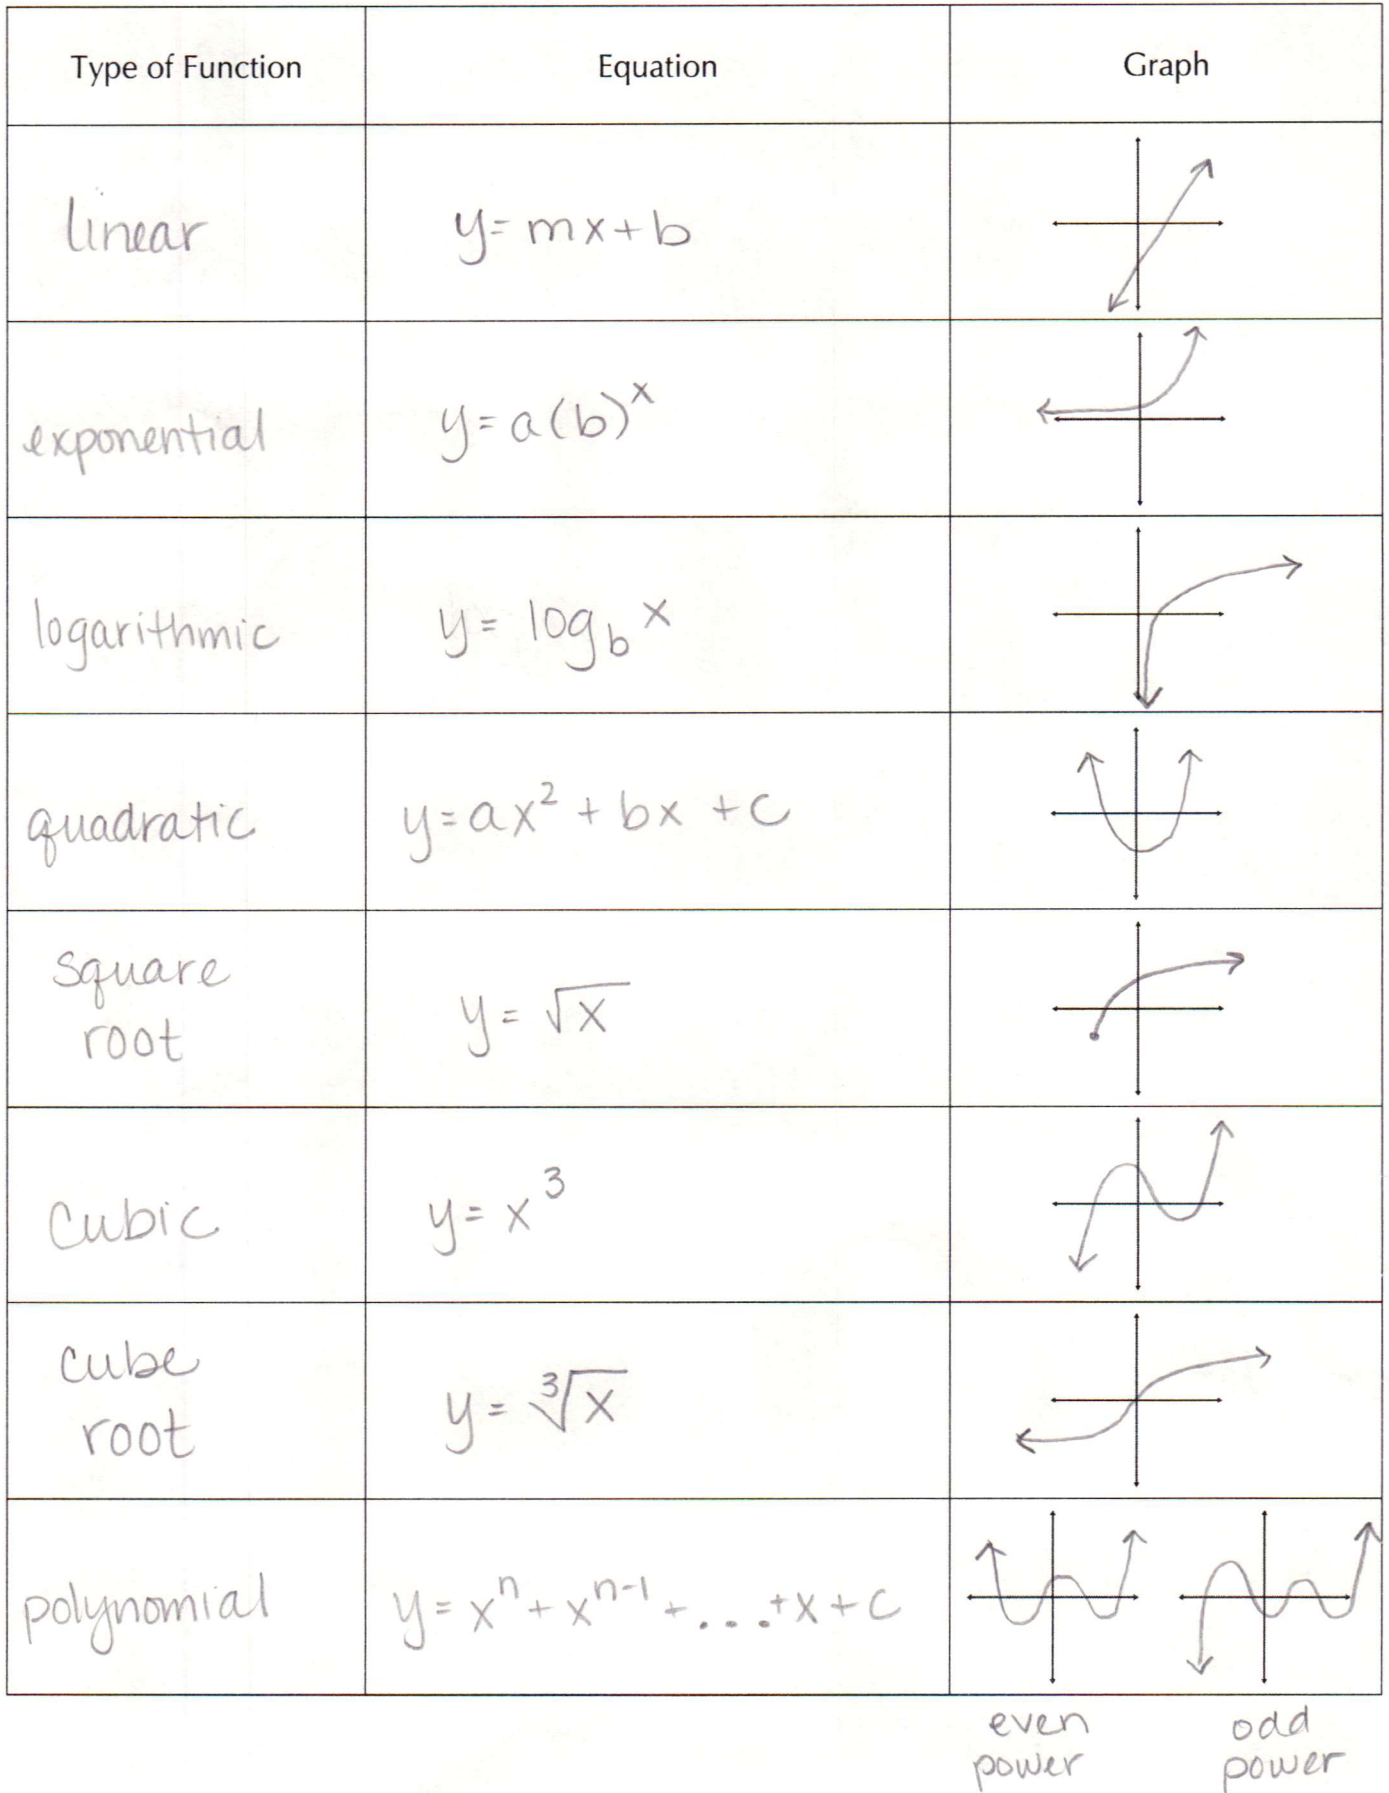 Type of Function Equation Graph
linear y = mx + b
exponential y = a(b)^x
logarithmic y = log_b x
quadratic y = ax² + bx + c
square
root y = √x
cubic y = x³
cube
root y = ∛x
polynomial y = xⁿ + xⁿ⁻¹ + ... + x + c
even odd
power power